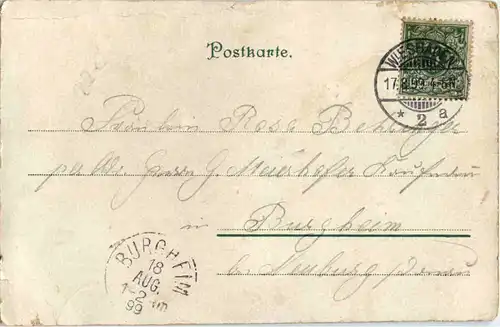 Postkarte.
WIESBADEN
17.8.99. 4-5N.
* 2 a
Fräulein Rosa Behringer
per Adr. Herrn G. Meierhofer Kaufmann
in
Burgheim
b. Neuburg Donau
BURGHEIM
18
AUG.
1-2 Nm
99